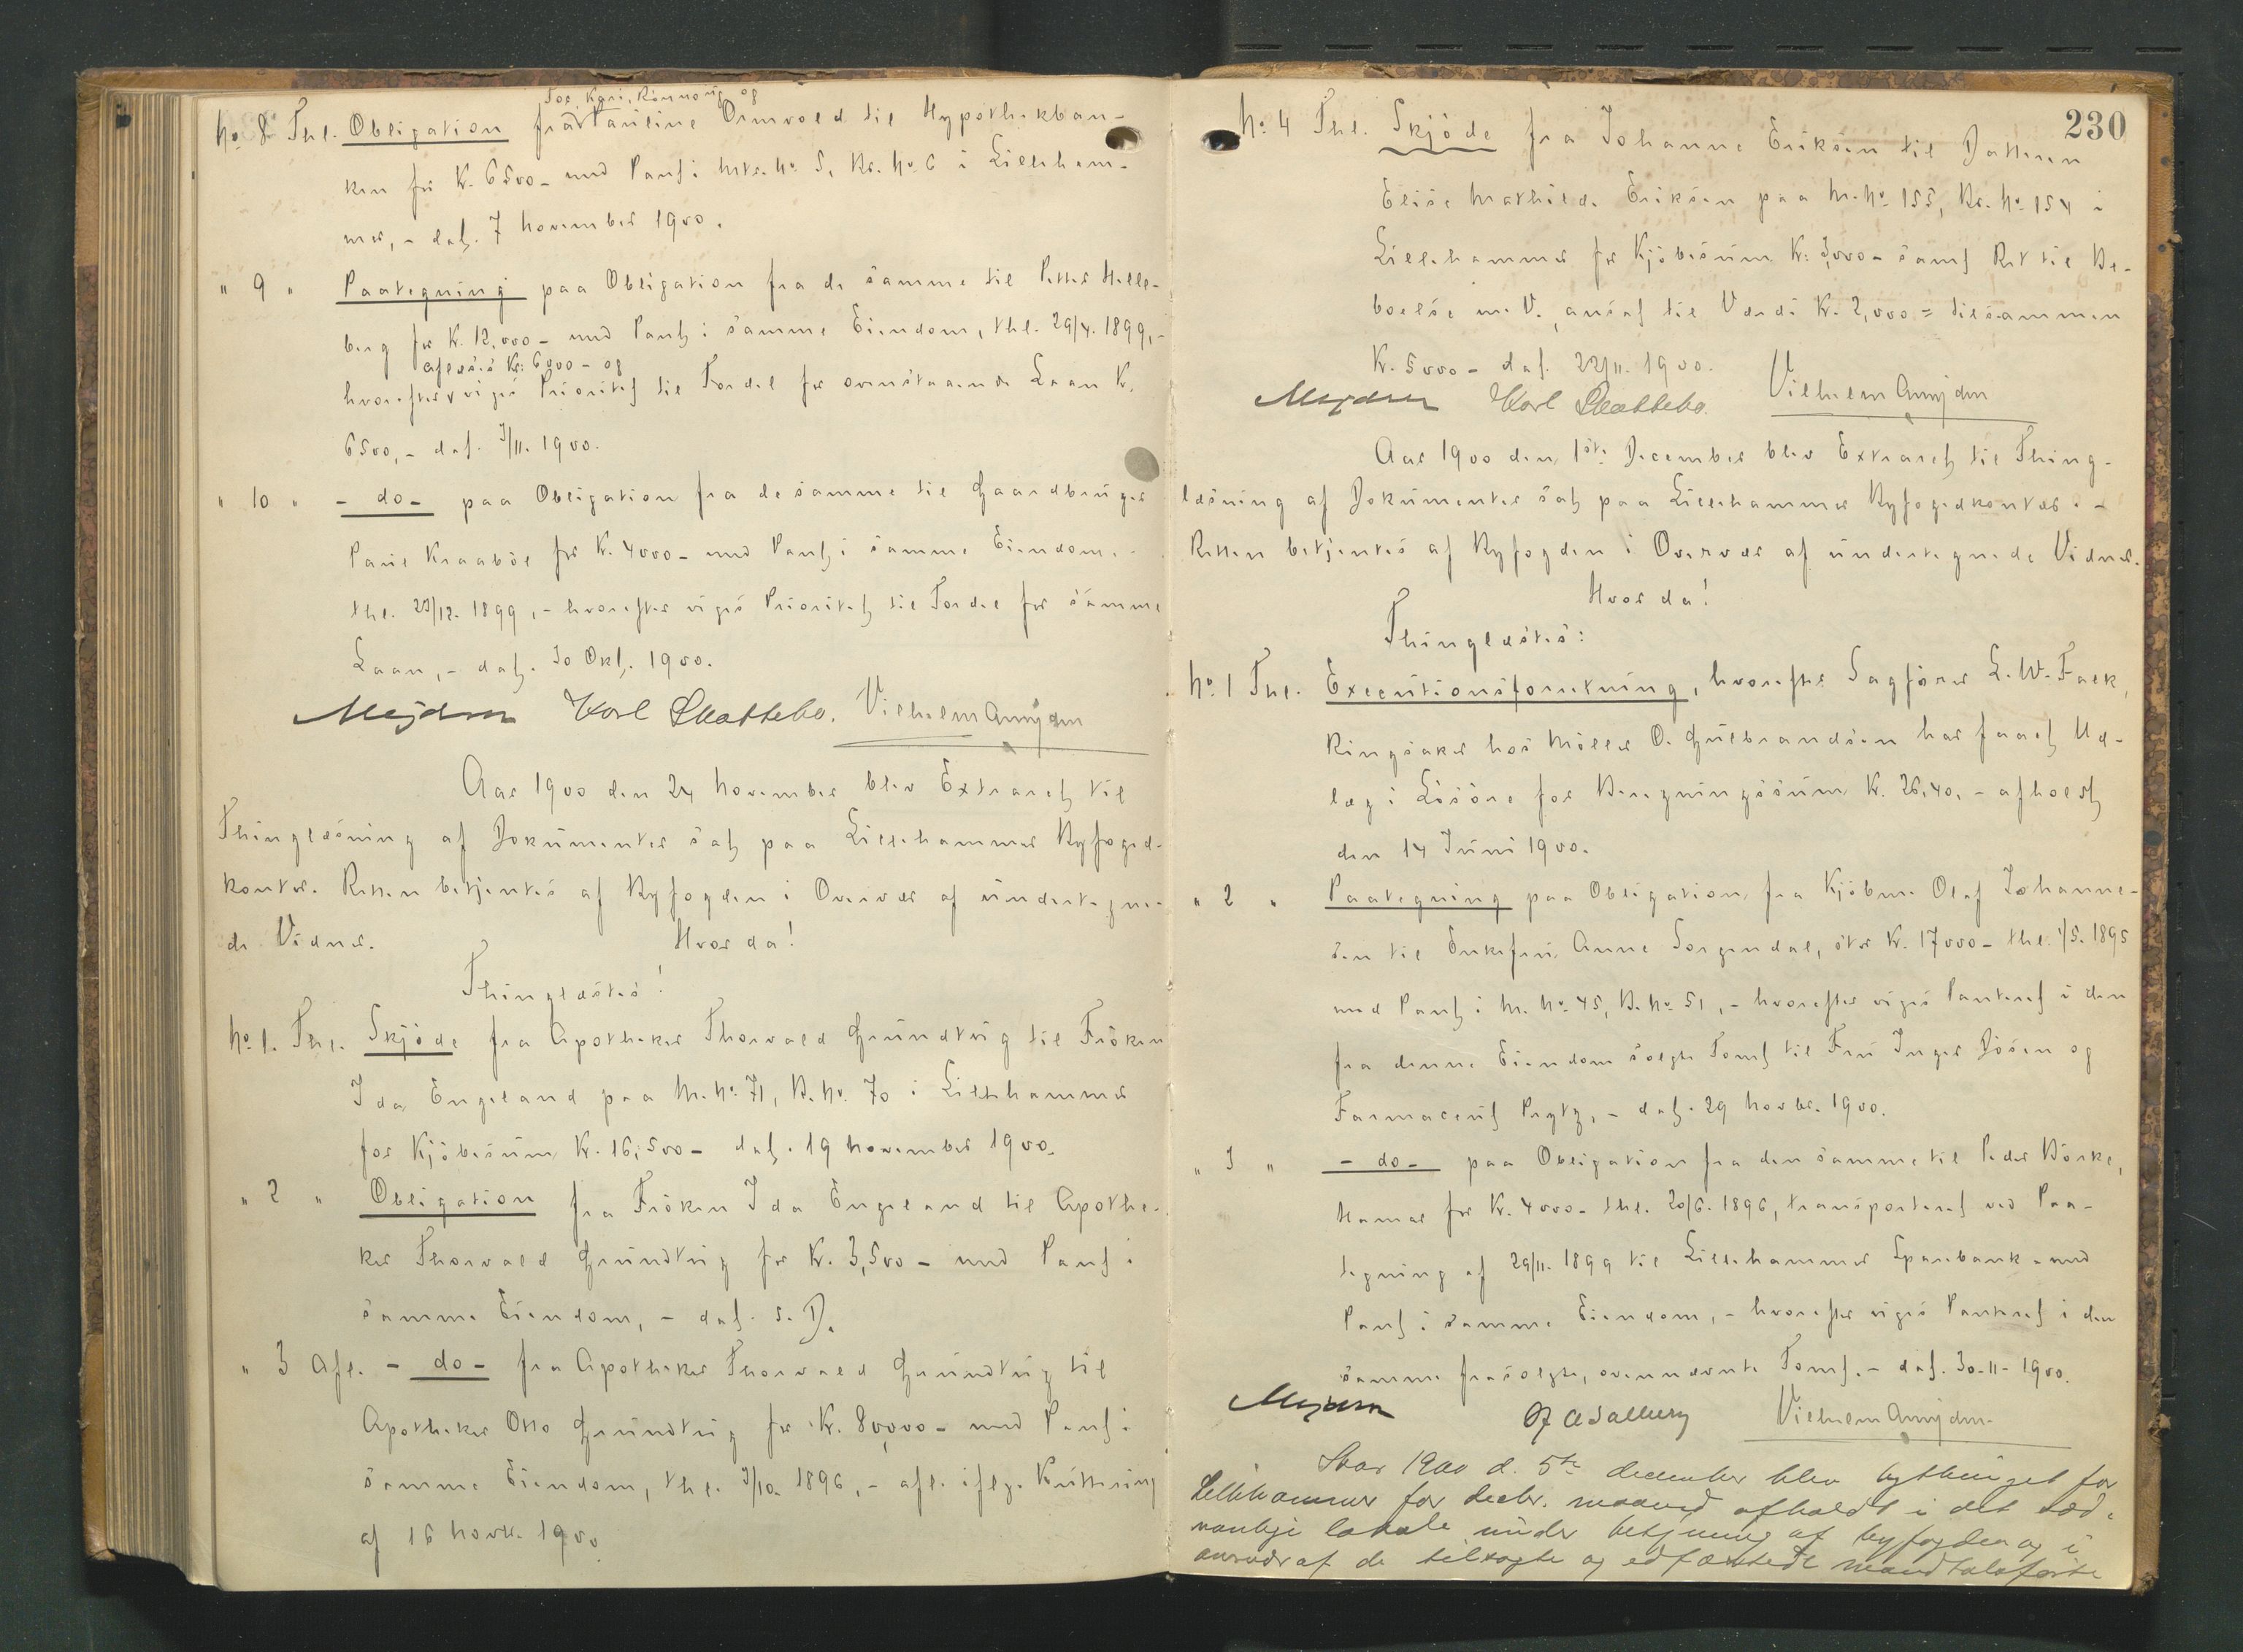 Tor, Kari, Rönnoüg og
No 8. Thl. Obligation fra Paüline Ormvold til Hypothekban-
ken for Kr. 6500 - med Pant i Mtr. No 5, Br. No 6 i Lilleham-
mer, - dat. 7 November 1900.
" 9 " Paategning paa Obligation fra de samme til Petter Helle-
berg for Kr. 12,000 - med Pant i samme Eiendom, thl. 29/4. 1899, -
aflöses Kr: 6000 - og
hvorefter viges Prioritet til Fordel for ovenstaaende Laan Kr.
6500, - dat. 7/11. 1900.
" 10 " - do - paa Obligation fra de samme til Gaardbrüger
Paül Kraaböl for Kr. 4000 - med Pant i samme Eiendom -
thl. 23/12. 1899, - hvorefter viges Prioritet til Fordel for samme
Laan, - dat. 30 Okt. 1900.
Mejdell Karl Skattebo. Vilhelm Amÿden
Aar 1900 den 24 November blev Extraret til
Thinglæsning af Dokümenter sat paa Lillehammer Byfoged-
kontor. Retten betjentes af Byfogden i Overvær af ündertegne-
de Vidner. Hvor da!
Thinglæstes!
No 1. Thl. Skjöde fra Apotheker Thorvald Gründtvig til Fröken
Ida Engeland paa M. No 71, B. No 70 i Lillehammer
for Kjöbesüm Kr. 16,500 - dat. 19 November 1900.
" 2 " Obligation fra Fröken Ida Engeland til Apothe-
ker Thorvald Gründtvig for Kr. 3,500 - med Pant i
samme Eiendom, - dat. s. D.
" 3 Afl. - do - fra Apotheker Thorvald Gründtvig til
Apotheker Otto Gründtvig for Kr. 80,000 - med Pant i
samme Eiendom, thl. 3/10. 1896, - afl. iflg. Kvittering
af 16 Novbr. 1900.
230
No 4 Thl. Skjöde fra Johanne Eriksen til Datteren
Elise Mathilde Eriksen paa M. No 155, Br. No 154 i
Lillehammer for Kjöbesüm Kr: 3,000 - samt Ret til Be-
boelse m. V. ansat til Værdi Kr. 2,000 = tilsammen
Kr. 5000 - dat. 22/11. 1900.
Mejdell Karl Skattebo. Vilhelm Amÿden
Aar 1900 den 1ste December blev Extraret til Thing-
læsning af Dokümenter sat paa Lillehammer Byfogedkontor. -
Retten betjentes af Byfogden i Overvær af ündertegnede Vidner.
Hvor da!
Thinglæstes:
No 1 Thl. Execütionsforretning, hvorefter Sagförer L. W. Falk,
Ringsaker hos Möller O. Gülbrandsen har faaet Ud-
læg i Lösöre for Beregningssüm Kr. 26,40, - afholdt
den 14 Jüni 1900.
" 2 " Paategning paa Obligation fra Kjöbm. Olaf Johanne-
sen til Enkefrü Anne Sorgendal, stor Kr. 17000 - thl. 1/5. 1895
med Pant i M. No 45, B. No 51, - hvorefter viges Panteret i den
fra denne Eiendom solgte Tomt til Frü Inger Jösen og
Farmaceüt Prytz, - dat. 29 Novbr. 1900.
" 3 " - do - paa Obligation fra den samme til Peder Börke,
Hamar for Kr. 4000 - thl. 20/6. 1896, transporteret ved Paa-
tegning af 29/11. 1899 til Lillehammer Sparebank - med
Pant i samme Eiendom, - hvorefter viges Panteret i den
samme frasolgte, ovennævnte Tomt. - dat. 30-11-1900.
Mejdell Vilhelm Amÿden
Aar 1900 d. 5te december blev bythinget for
Lillehammer for decbr. maaned afholdt i det sæd-
vanlige lokale under betjening af byfogden og i
overvær af de tilsagte og edfæstede mandtalsförte